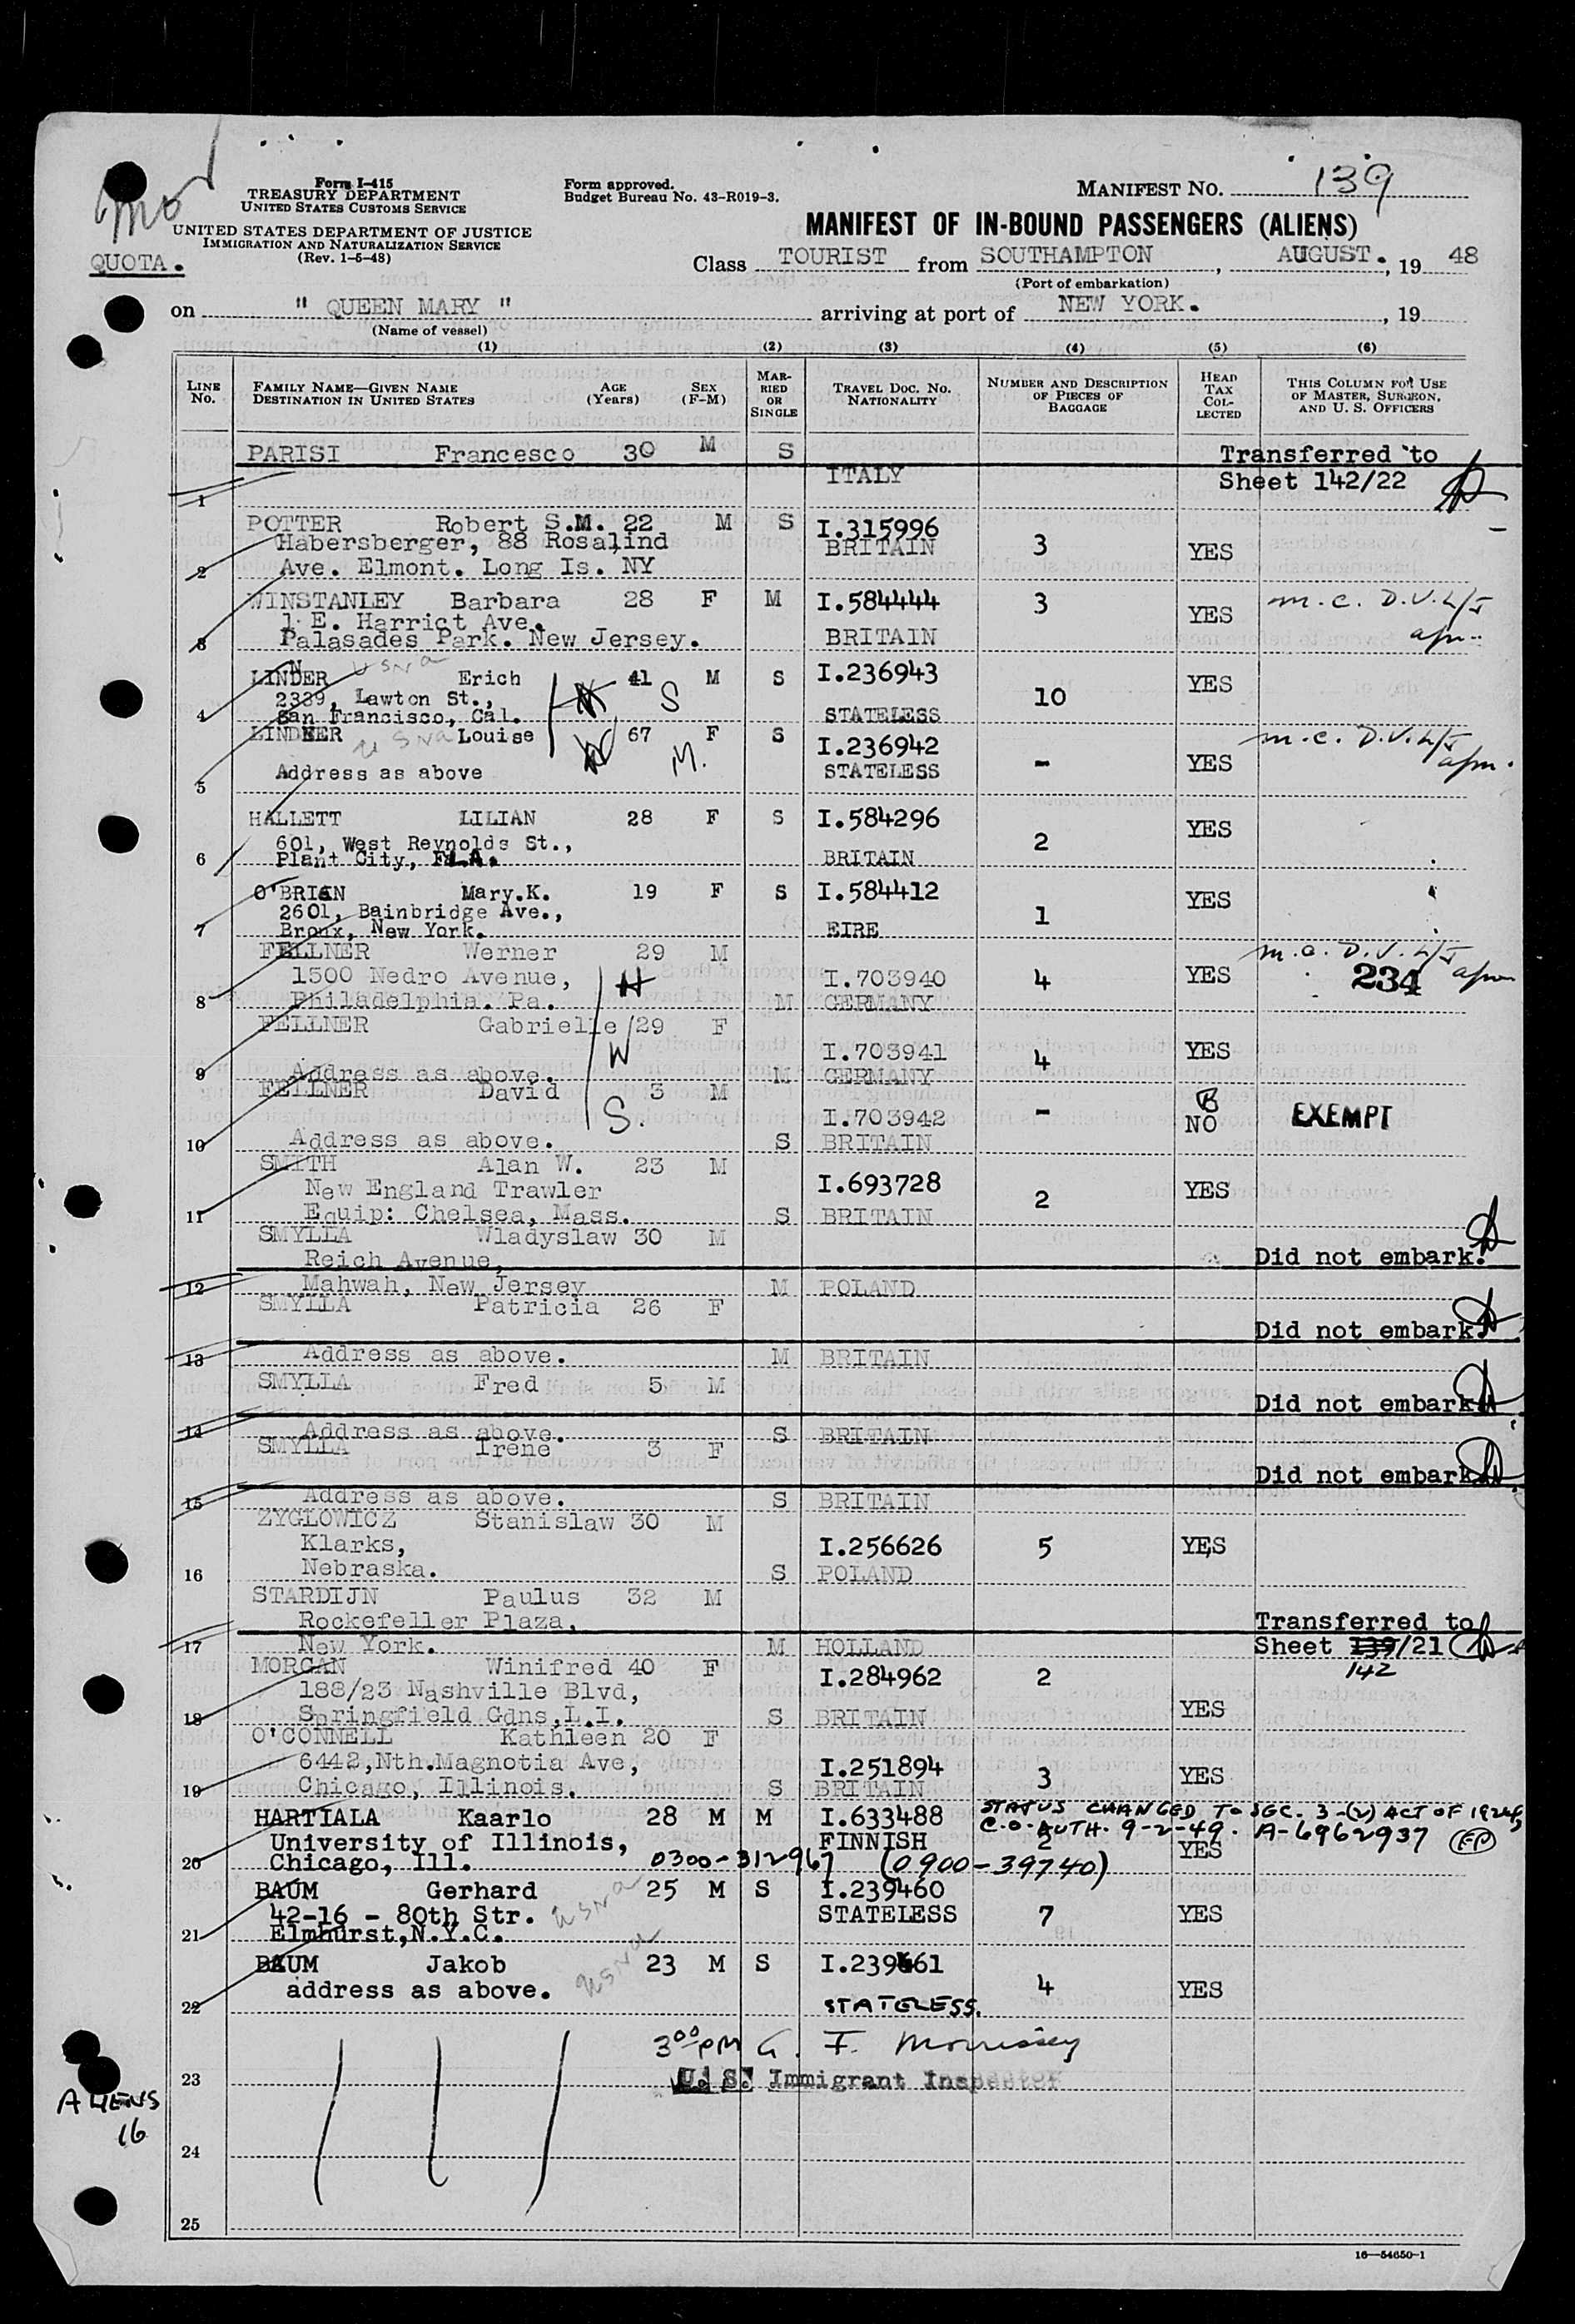 Form I-415
TREASURY DEPARTMENT
UNITED STATES CUSTOMS SERVICE
UNITED STATES DEPARTMENT OF JUSTICE
IMMIGRATION AND NATURALIZATION SERVICE
(Rev. 1-5-48)
QUOTA.
Form approved.
Budget Bureau No. 43-R019-3.
MANIFEST NO. 139
MANIFEST OF IN-BOUND PASSENGERS (ALIENS)
Class TOURIST from SOUTHAMPTON, AUGUST., 19 48
(Port of embarkation)
on " QUEEN MARY " arriving at port of NEW YORK., 19
(Name of vessel)
(1) (2) (3) (4) (5) (6)
LINE No. FAMILY NAME—GIVEN NAME DESTINATION IN UNITED STATES AGE (Years) SEX (F-M) MARRIED OR SINGLE TRAVEL DOC. NO. NATIONALITY NUMBER AND DESCRIPTION OF PIECES OF BAGGAGE HEAD TAX COLLECTED THIS COLUMN FOR USE OF MASTER, SURGEON, AND U. S. OFFICERS
PARISI Francesco 30 M S Transferred to
1 ITALY Sheet 142/22
POTTER Robert S.M. 22 M S I.315996
Habersberger, 88 Rosalind BRITAIN 3 YES
2 Ave. Elmont. Long Is. NY
WINSTANLEY Barbara 28 F M I.584444 3 YES m.c. D.V.L/I
1 E. Harriet Ave.
3 Palasades Park. New Jersey. BRITAIN
LINDER N usna Erich 41 M S I.236943 YES
2339, Lawton St., S 10
4 San Francisco, Cal. STATELESS
LINDNER usna Louise 67 F S I.236942 m.c. D.V.L/I
5 Address as above M. STATELESS - YES
HALLETT LILIAN 28 F S I.584296 YES
601, West Reynolds St., 2
6 Plant City, FLA. BRITAIN
O'BRIEN Mary.K. 19 F S I.584412 YES
2601, Bainbridge Ave., 1
7 Bronx, New York. EIRE
FELLNER Werner 29 M m.c. D.V.L/I
1500 Nedro Avenue, H I.703940 4 YES 234
8 Philadelphia. Pa. M GERMANY
FELLNER Gabrielle 29 F
W I.703941 4 YES
9 Address as above. M GERMANY
FELLNER David 3 M
S. I.703942 - NO EXEMPT
10 Address as above. S BRITAIN
SMITH Alan W. 23 M
New England Trawler I.693728 2 YES
11 Equip: Chelsea, Mass. S BRITAIN
SMYLLA Wladyslaw 30 M
Reich Avenue, Did not embark.
12 Mahwah, New Jersey M POLAND
SMYLLA Patricia 26 F
Did not embark.
13 Address as above. M BRITAIN
SMYLLA Fred 5 M
Did not embark
14 Address as above. S BRITAIN
SMYLLA Irene 3 F
Did not embark
15 Address as above. S BRITAIN
ZYGLOWICZ Stanislaw 30 M
Klarks, I.256626 5 YES
16 Nebraska. S POLAND
STARDIJN Paulus 32 M
Rockefeller Plaza, Transferred to
17 New York. M HOLLAND Sheet 139/21
142
MORGAN Winifred 40 F I.284962 2
188/23 Nashville Blvd, YES
18 Springfield Gdns,L.I. S BRITAIN
O'CONNELL Kathleen 20 F
6442,Nth.Magnotia Ave, I.251894 3 YES
19 Chicago, Illinois. S BRITAIN
HARTIALA Kaarlo 28 M M I.633488 STATUS CHANGED TO SEC. 3-(2) ACT OF 1924,
C.O. AUTH. 9-2-49. A-6962937
University of Illinois, FINNISH 2 YES
20 Chicago, Ill. 0300-312967 (0900-39740)
BAUM Gerhard 25 M S I.239460
42-16 - 80th Str. usna STATELESS 7 YES
21 Elmhurst,N.Y.C.
BAUM Jakob 23 M S I.239461
address as above. usna 4 YES
22 STATELESS.
3⁰⁰ PM G. F. Morrissey
23 U. S. Immigrant Inspector
ALIENS
16
24
25
16—54650-1